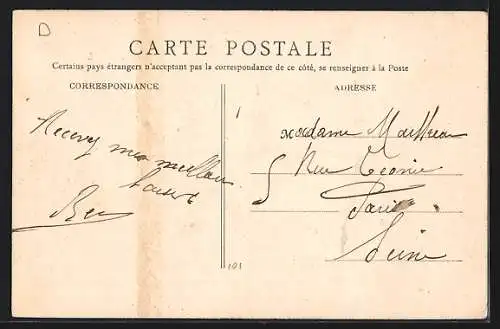 D
CARTE POSTALE
Certains pays étrangers n'acceptant pas la correspondance de ce côté, se renseigner à la Poste
CORRESPONDANCE
ADRESSE
Recevez mes meilleurs
baisers
Madame
5 Rue
Paris
Seine
101